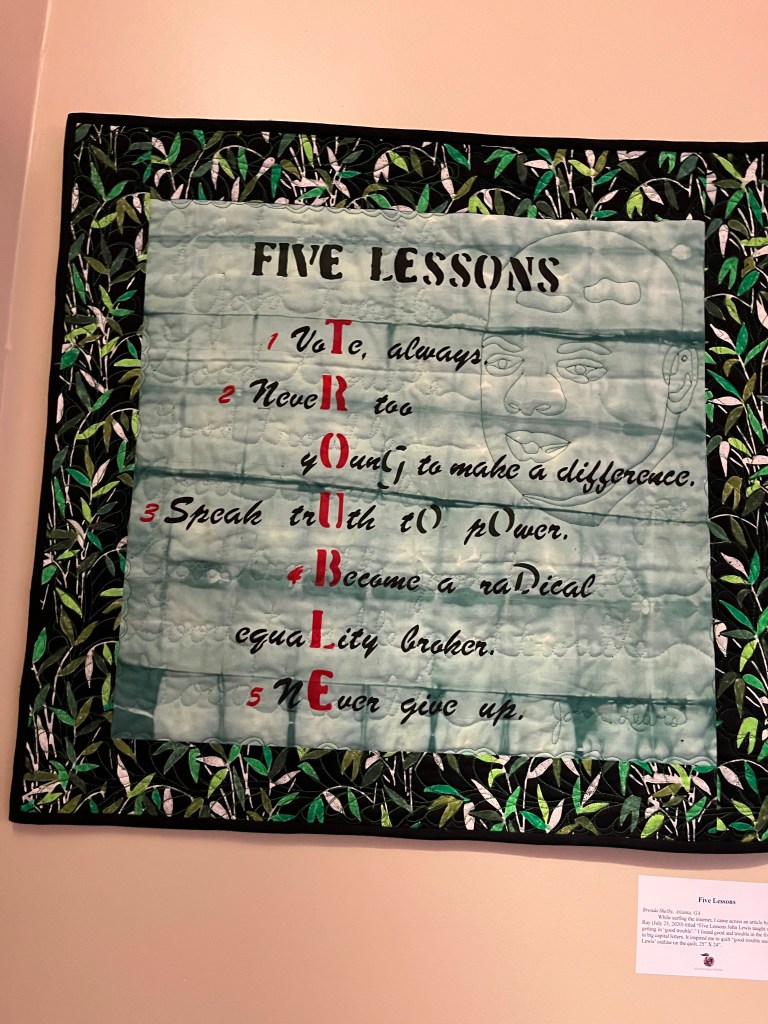 FIVE LESSONS
1 VoTe, always.
2 NeveR too
yOunG to make a difference.
3 Speak trUth tO pOwer.
4 Become a raDical
equaLity broker.
5 NEver give up.
John Lewis
Five Lessons
Brenda Shelby, Atlanta, GA
While surfing the internet, I came across an article by
Ray (July 23, 2020) titled "Five Lessons John Lewis taught
getting in 'good trouble'." I found good and trouble in the five
in big capital letters. It inspired me to quilt "good trouble and
Lewis' outline on the quilt. 25" X 24".